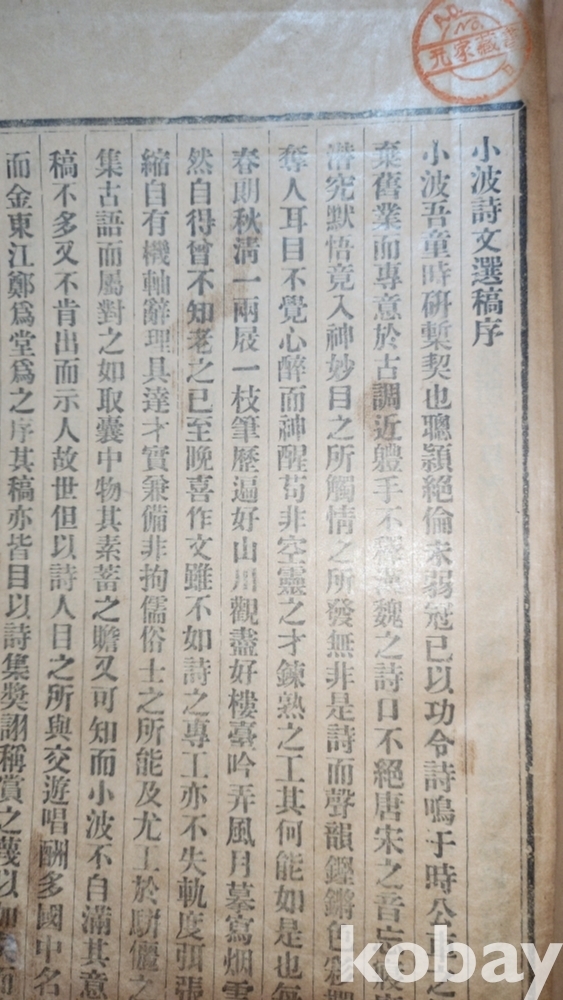 小波詩文選稿序
小波吾童時硏槧契也聰穎絕倫未弱冠已以功令詩鳴于時公正之
棄舊業而專意於古調近軆手不釋漢魏之詩口不絕唐宋之音忘
潛究默悟竟入神妙目之所觸情之所發無非是詩而聲韻鏗鏘色彩
奪人耳目不覺心醉而神醒苟非空靈之才鍊熟之工其何能如是也每
春朗秋淸一兩屐一枝筆歷遍好山川觀盡好樓臺吟弄風月摹寫烟雲
然自得曾不知老之已至晩喜作文雖不如詩之專工亦不失軌度弛張
縮自有機軸辭理具達才實兼備非拘儒俗士之所能及尤工於騈儷之
集古語而屬對之如取囊中物其素蓄之贍又可知而小波不自滿其意
稿不多又不肯出而示人故世但以詩人目之所與交遊唱酬多國中名
而金東江鄭爲堂爲之序其稿亦皆目以詩集獎詡稱賞之蔑以加
元家藏書
kobay